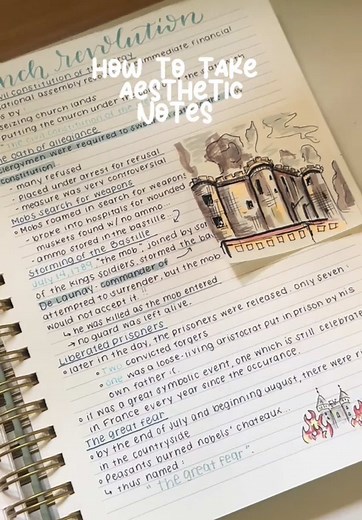 HOW TO TAKE
AESTHETIC
NOTES
nch revolution
civil constitution of the clergy
national assembly immediate financial
s by
seizing church lands
putting the church under the
the oath of allegiance
clergymen were required to swear
constitution)
- many refused
- placed under arrest for refusal
- measure was very controversial
Mobs search for weapons
Mobs roamed in search for weapons
- broke into hospitals for wounded
muskets found w/ no ammo
- ammo stored in the bastille
Storming of the Bastille
July 14, 1789 "the mob", joined by some
of the Kings soldiers, stormed the bas
De Launay: commander of
attempted to surrender, but the mob
would not accept it
↳ he was killed as the mob entered
→ no guard was left alive.
Liberated prisoners
later in the day, the prisoners were released. only seven:
Two convicted forgers
one was a loose-living aristocrat put in prison by his
own father
it was a great symbolic event, one which is still celebrate
in France every year since the occurance.
The great fear
by the end of July and beginning august, there were
in the countryside
Peasants burned nobels' chateaux...
↳ thus named:
"the great fear"